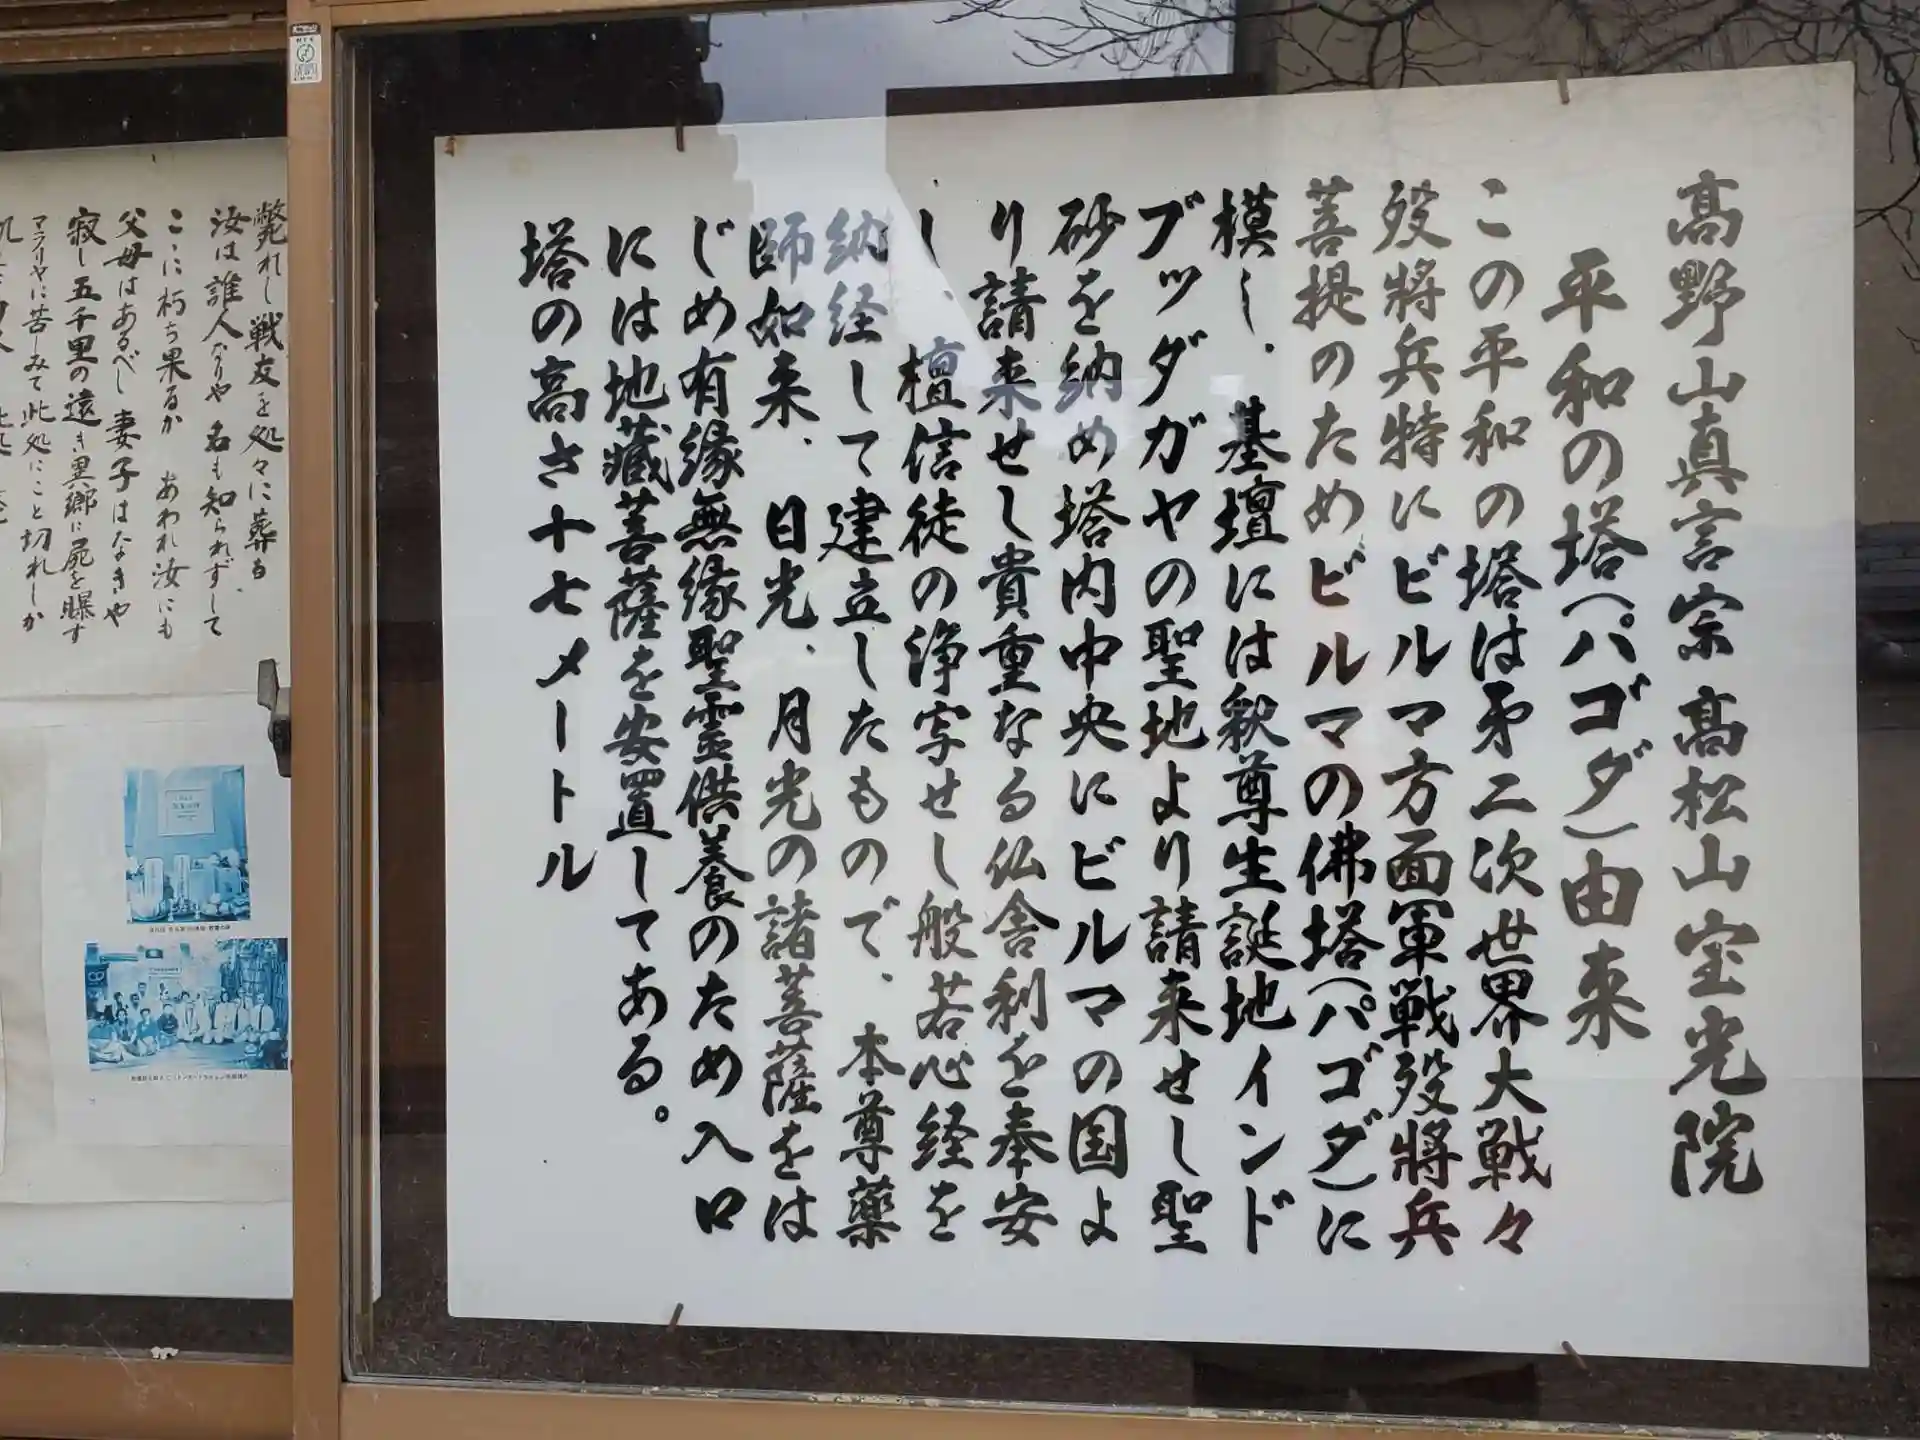 高野山真言宗 高松山宝光院
平和の塔(パゴダ)由来
この平和の塔は㐧二次世界大戦々
歿將兵特にビルマ方面軍戦歿將兵
菩提のためビルマの佛塔(パゴダ)に
模し、基壇には釈尊生誕地インド
ブッダガヤの聖地より請来せし聖
砂を納め塔内中央にビルマの国よ
り請来せし貴重なる仏舎利を奉安
し、檀信徒の浄写せし般若心経を
納経して建立したもので、本尊藥
師如来、日光、月光の諸菩薩をは
じめ有縁無縁聖霊供養のため入口
には地藏菩薩を安置してある。
塔の高さ十七メートル
斃れし戦友を処々に葬る
汝は誰人なりや 名も知られずして
こゝに朽ち果るか あわれ汝にも
父母はあるべし 妻子はなきや
寂し五千里の遠き異郷に屍を曝す
マラリヤに苦しみて此処にこと切れしか